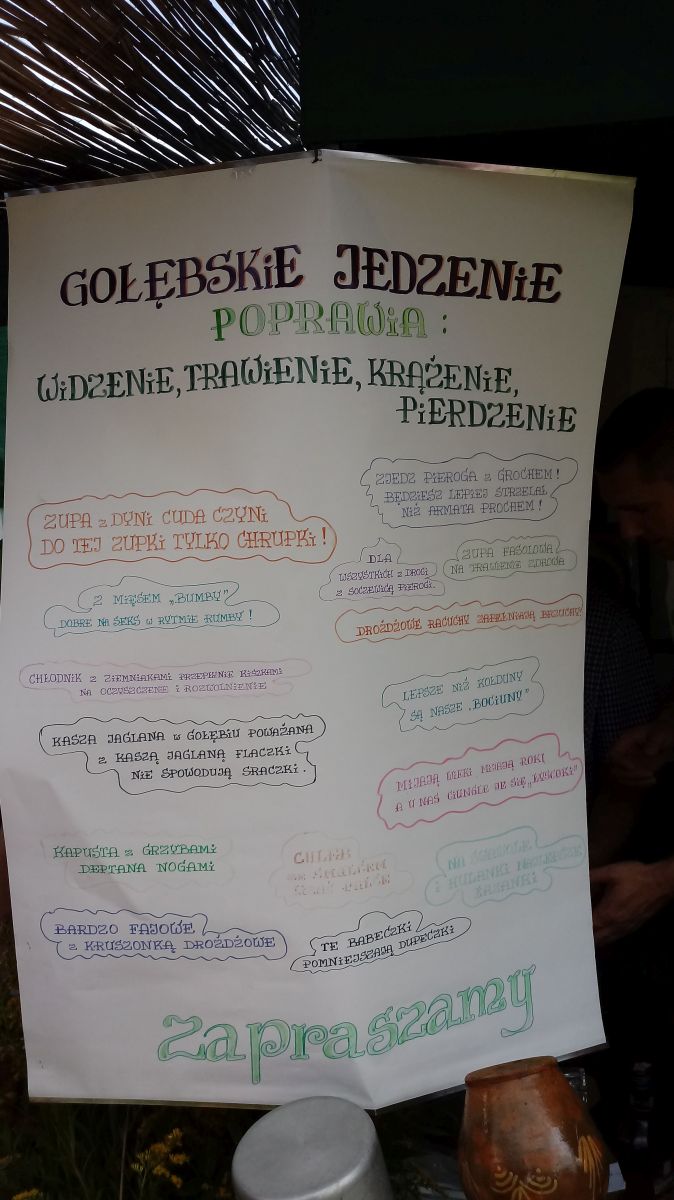 GOŁĘBSKIE JEDZENIE
POPRAWIA :
WIDZENIE, TRAWIENIE, KRĄŻENIE,
PIERDZENIE
ZUPA z DYNI CUDA CZYNI
DO TEJ ZUPKI TYLKO CHRUPKI !
ZJEDZ PIEROGA z GROCHEM !
BĘDZIESZ LEPIEJ STRZELAŁ
NIŻ ARMATA PROCHEM !
DLA
WSZYSTKICH z DROGI
z SOCZEWICĄ PIEROGI.
ZUPA FASOLOWA
NA TRAWIENIE ZDROWA
Z MIĘSEM „BUMBY”
DOBRE NA SEKS W RYTMIE RUMBY !
DROŻDŻOWE RACUCHY ZAPEŁNIAJĄ BRZUCHY
CHŁODNIK z ZIEMNIAKAMI PRZEPŁYNIE KISZKAMI
NA OCZYSZCZENIE i ROZWOLNIENIE
LEPSZE NIŻ KOŁDUNY
SĄ NASZE „BOCIUNY”
KASZA JAGLANA W GOŁĘBIU POWAŻANA
z KASZĄ JAGLANĄ FLACZKI
NIE SPOWODUJĄ SRACZKI.
MIJAJĄ WIEKI MIJAJĄ ROKI
A U NAS CIUNGLE JE SIĘ
KAPUSTA z GRZYBAMI
DEPTANA NOGAMI
ZE SMALCEM
NA SWAWOLE
i HULANKI NAJLEPSZE
ŁAZANKI
BARDZO FAJOWE
z KRUSZONKĄ DROŻDŻOWE
TE BABECZKI
POMNIEJSZAJĄ DUPECZKI
Zapraszamy